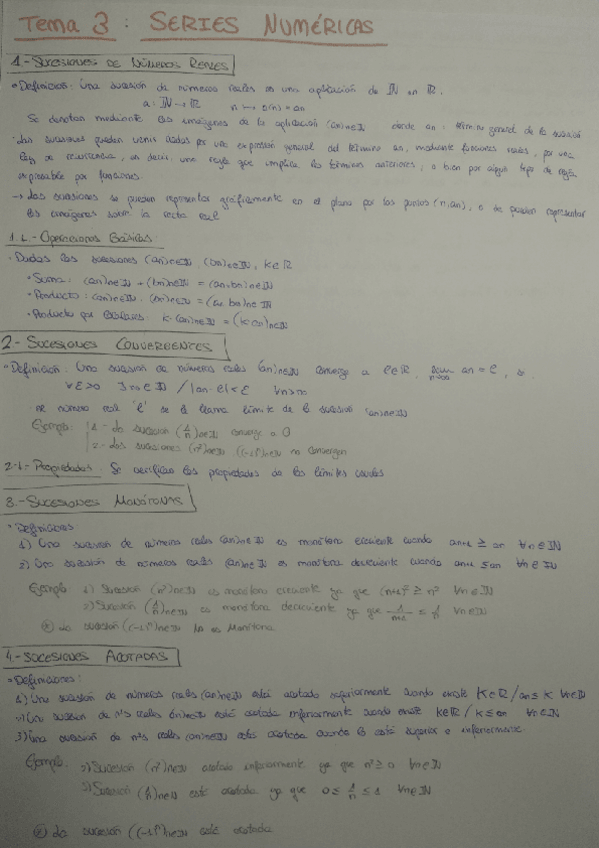 Tema 3 : SERIES NUMÉRICAS
1.- SUCESIONES DE NÚMEROS REALES
• Definición: Una sucesión de números reales es una aplicación de IN en IR.
a: IN → IR n → a(n) = an
Se denotan mediante las imágenes de la aplicación (an)n∈IN donde an: término general de la sucesión
· Las sucesiones pueden venir dadas por una expresión general del término an, mediante funciones reales, por una
ley de recurrencia, es decir, una regla que implica los términos anteriores, o bien por algún tipo de regla
expresable por funciones.
→ Las sucesiones se pueden representar gráficamente en el plano por los puntos (n,an), o se pueden representar
las imágenes sobre la recta real
1.1.- Operaciones Básicas:
· Dadas las sucesiones (an)n∈IN, (bn)n∈IN, K∈IR
• Suma: (an)n∈IN + (bn)n∈IN = (an+bn)n∈IN
• Producto: (an)n∈IN · (bn)n∈IN = (an·bn)n∈IN
• Producto por Escalares: K·(an)n∈IN = (K·an)n∈IN
2- SUCESIONES CONVERGENTES
• Definición: Una sucesión de números reales (an)n∈IN converge a l∈IR, lim n→∞ an = l, si
∀ε>0 ∃n0∈IN / |an-l|<ε ∀n>n0
número real 'l' se le llama límite de la sucesión (an)n∈IN
Ejemplo: 1- La sucesión (1/n)n∈IN converge a 0
2- Las sucesiones (n²)n∈IN, ((-1)ⁿ)n∈IN no convergen
2.1.- Propiedades: Se verifican las propiedades de los límites
3.- SUCESIONES MONÓTONAS
• Definiciones
1) Una sucesión de números reales (an)n∈IN es monótona creciente cuando an+1 ≥ an ∀n∈IN
2) Una sucesión de números reales (an)n∈IN es monótona decreciente cuando an+1 ≤ an ∀n∈IN
Ejemplo 1) Sucesión (n²)n∈IN es monótona creciente ya que (n+1)² ≥ n² ∀n∈IN
2) Sucesión (1/n)n∈IN es monótona decreciente ya que 1/n+1 ≤ 1/n ∀n∈IN
La sucesión ((-1)ⁿ)n∈IN no es Monótona
4- SUCESIONES ACOTADAS
• Definiciones:
1) Una sucesión de números reales (an)n∈IN está acotada superiormente cuando existe K∈IR / an ≤ K ∀n∈IN
2) Una sucesión de nºs reales (an)n∈IN está acotada inferiormente cuando existe K∈IR / K ≤ an ∀n∈IN
3) Una sucesión de nºs reales (an)n∈IN está acotada cuando lo está superior e inferiormente
Ejemplo: Sucesión (n²)n∈IN acotada inferiormente ya que n² ≥ 0 ∀n∈IN
Sucesión (1/n)n∈IN está acotada ya que 0 ≤ 1/n ≤ 1 ∀n∈IN
La sucesión ((-1)ⁿ)n∈IN está acotada